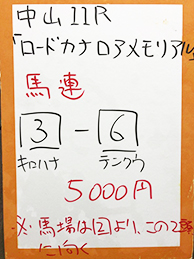 中山11R
「ロードカナロアメモリアル」
馬連
3 - 6
キロハナ テンクウ
5000円
※馬場は2より、この2頭
に向く